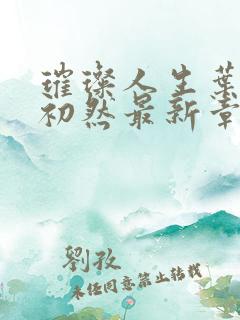 璀璨人生葉
初然最新章
劉孜
未经同意禁止转载